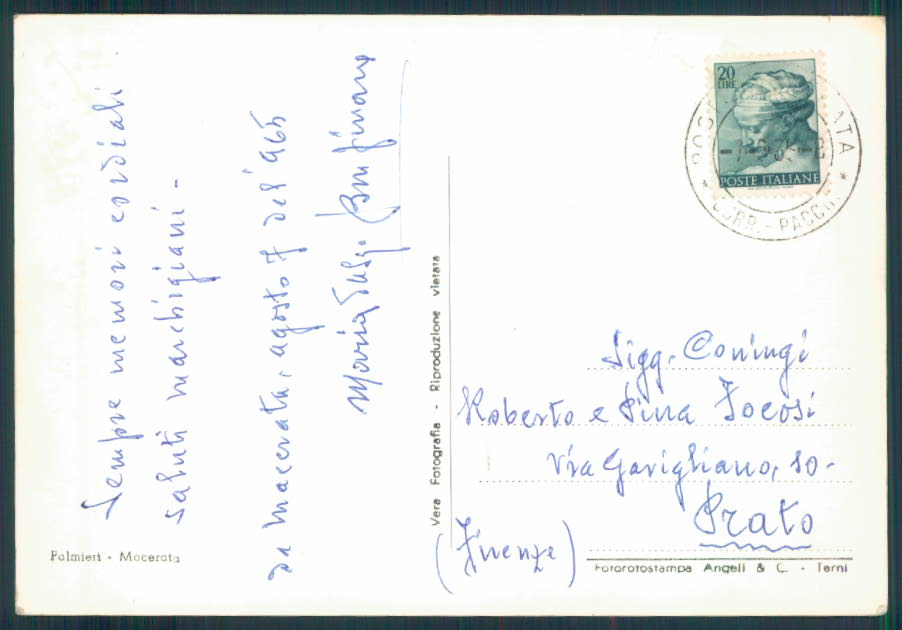 Sempre memori cordiali
saluti marchigiani -
da Macerata, agosto 7 del '965
Maria
Palmieri - Macerata
Vera Fotografia - Riproduzione vietata
20
LIRE
POSTE ITALIANE
CORR. - PACCHI
Sigg. Coniugi
Roberto e Pina Focosi
Via Garigliano, 10-
Prato
(Firenze)
Fotorotostampa Angeli & C. - Terni